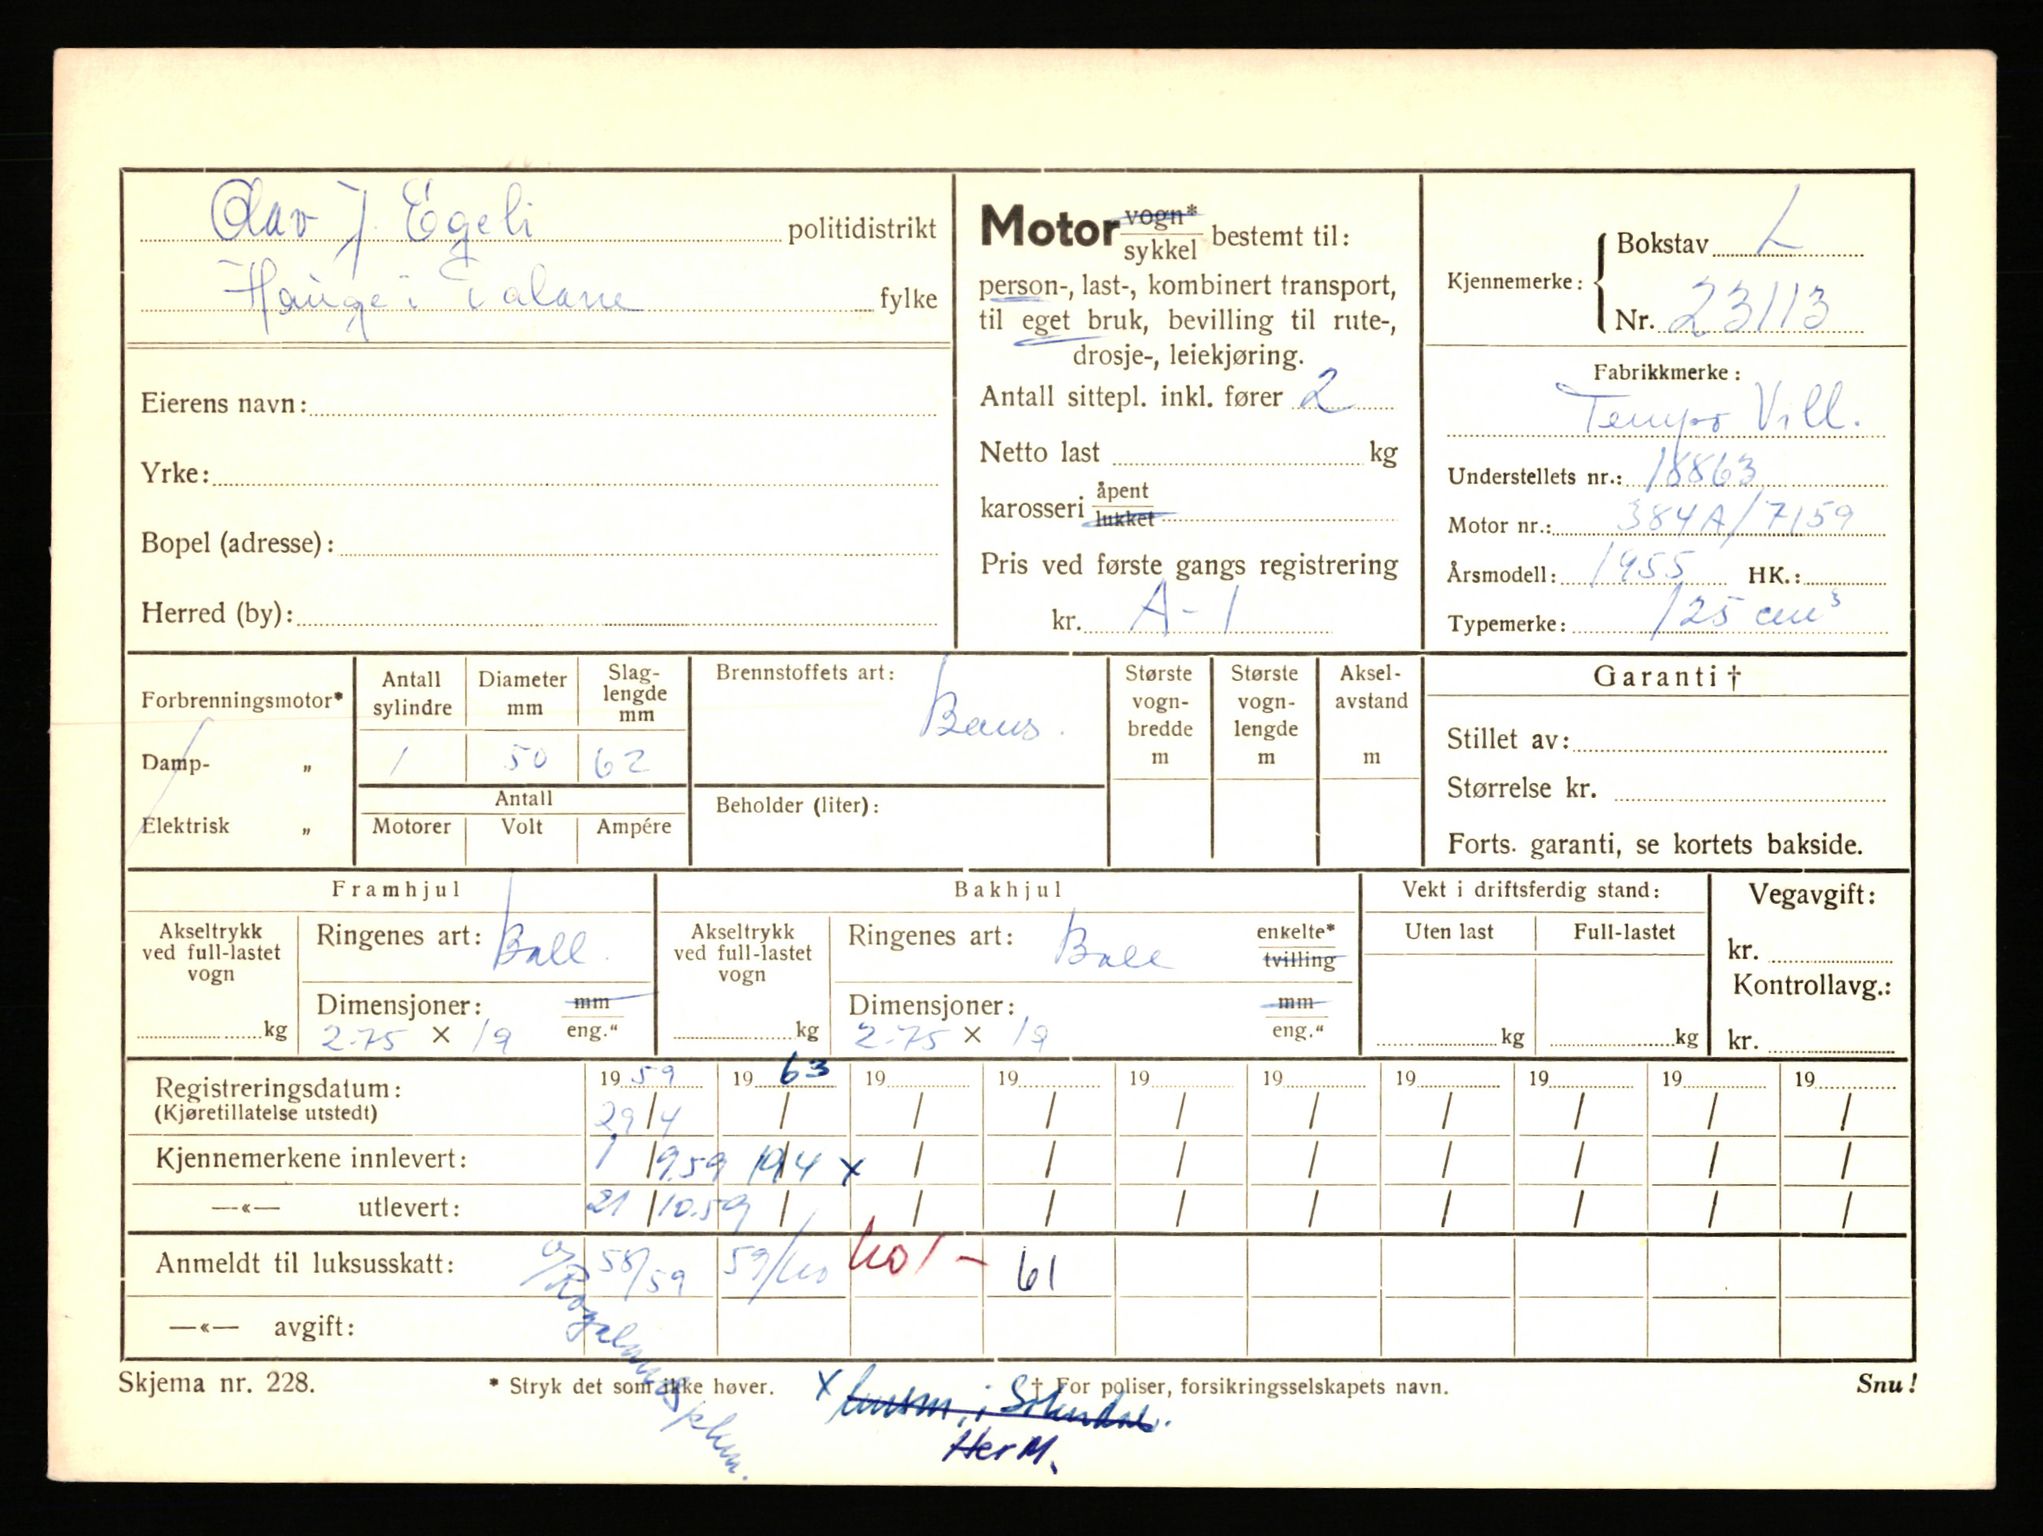 Olav J. Egeli politidistrikt
Hauge i Dalane fylke
Eierens navn:
Yrke:
Bopel (adresse):
Herred (by):
Motor vogn* / sykkel bestemt til:
person-, last-, kombinert transport,
til eget bruk, bevilling til rute-,
drosje-, leiekjøring.
Antall sittepl. inkl. fører 2
Netto last kg
karosseri åpent / lukket
Pris ved første gangs registrering
kr. A-1
Kjennemerke: Bokstav L
Nr. 23113
Fabrikkmerke:
Tempo Vill.
Understellets nr.: 18863
Motor nr.: 384A/7159
Årsmodell: 1955 HK.:
Typemerke: 125 cm³
Forbrenningsmotor*
Damp- „
Elektrisk „
Antall sylindre
Diameter mm
Slag-lengde mm
1 50 62
Antall
Motorer Volt Ampére
Brennstoffets art:
Bens.
Beholder (liter):
Største vogn-bredde m
Største vogn-lengde m
Aksel-avstand m
Garanti †
Stillet av:
Størrelse kr.
Forts. garanti, se kortets bakside.
Framhjul
Akseltrykk ved full-lastet vogn
kg
Ringenes art: Ball.
Dimensjoner: mm / eng.“
2.75 × 19
Bakhjul
Akseltrykk ved full-lastet vogn
kg
Ringenes art: Ball
enkelte* / tvilling
Dimensjoner: mm / eng.“
2.75 × 19
Vekt i driftsferdig stand:
Uten last Full-lastet
kg kg
Vegavgift:
kr.
Kontrollavg.:
kr.
Registreringsdatum: 19 59 19 63 19 19 19 19 19 19 19 19
(Kjøretillatelse utstedt) 29/4 / / / / / / / / /
Kjennemerkene innlevert: 1/9.59 10/4 x / / / / / / / /
—«— utlevert: 21/10.59 / / / / / / / / /
Anmeldt til luksusskatt: 58/59 59/60 60/- 61
—«— avgift:
Skjema nr. 228. * Stryk det som ikke høver. † For poliser, forsikringsselskapets navn. Snu!
x i Sokndal.
Her M.